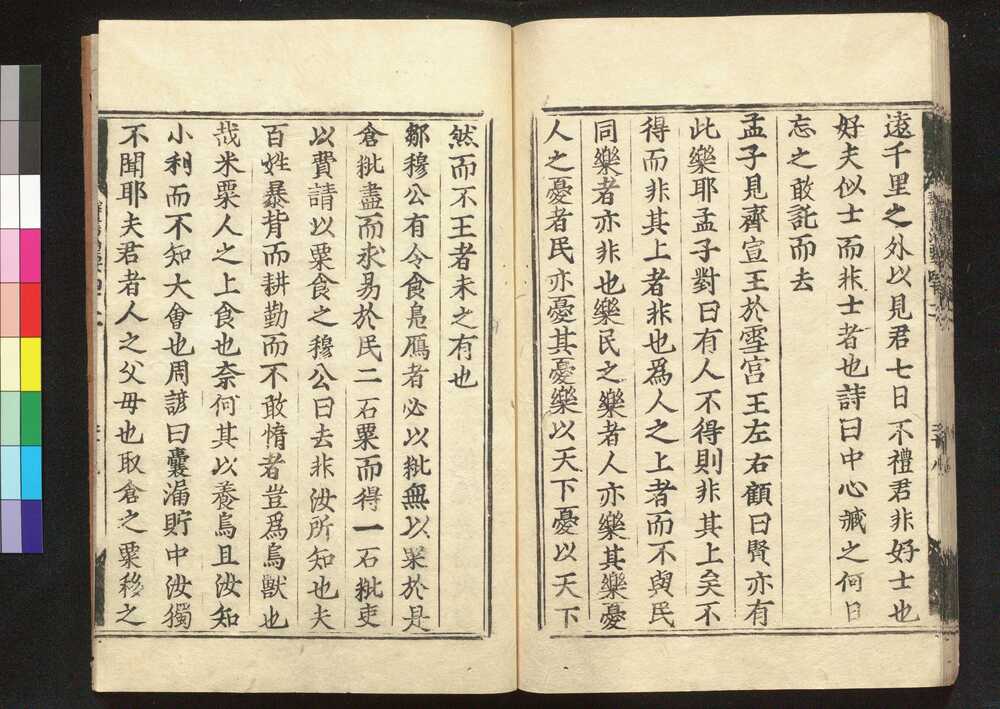 遠千里之外以見君七日不禮君非好士也
好夫似士而非士者也詩曰中心藏之何日
忘之敢託而去
孟子見齊宣王於雪宮王左右顧曰賢亦有
此樂耶孟子對曰有人不得則非其上矣不
得而非其上者非也為人之上者而不與民
同樂者亦非也樂民之樂者人亦樂其樂憂
人之憂者民亦憂其憂樂以天下憂以天下
然而不王者未之有也
鄒穆公有令食鳧鴈者必以粃無以粟於是
倉粃盡而求易於民二石粟而得一石粃吏
以費請以粟食之穆公曰去非汝所知也夫
百姓暴背而耕勤而不敢惰者豈爲鳥獸也
哉米粟人之上食也奈何其以養鳥且汝知
小利而不知大會也周諺曰囊漏貯中汝獨
不聞耶夫君者人之父母也取倉之粟移之